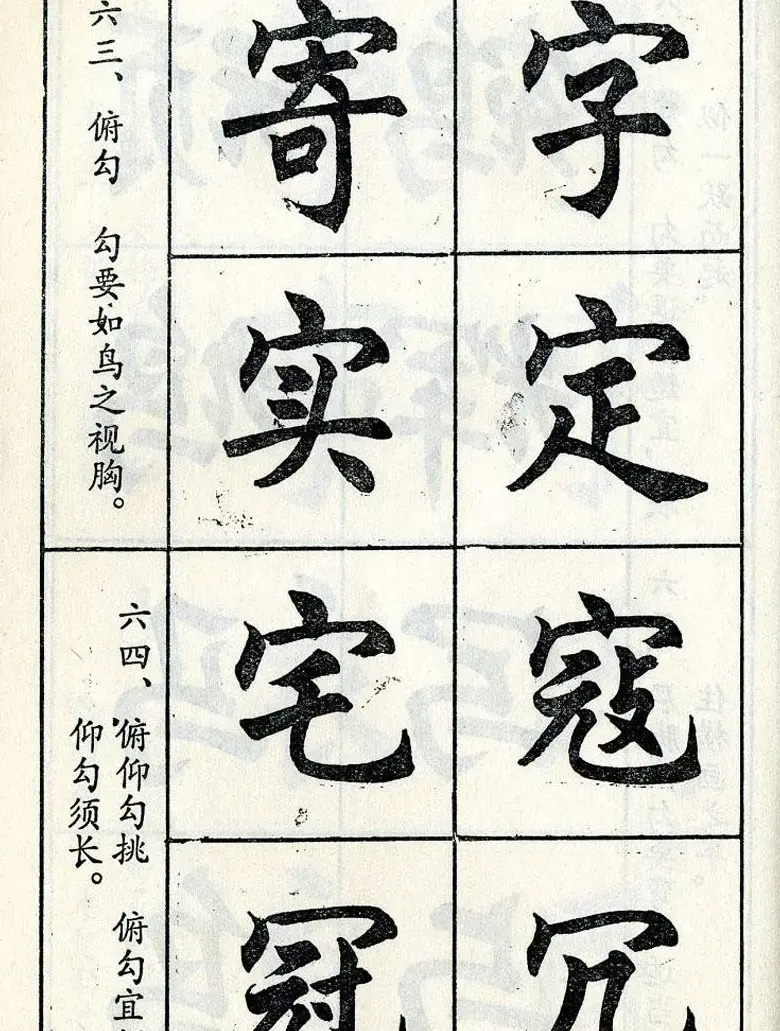 字定寇冗
寄实宅冠
六三、俯勾 勾要如鸟之视胸。
六四、俯仰勾挑 俯勾宜
仰勾须长。